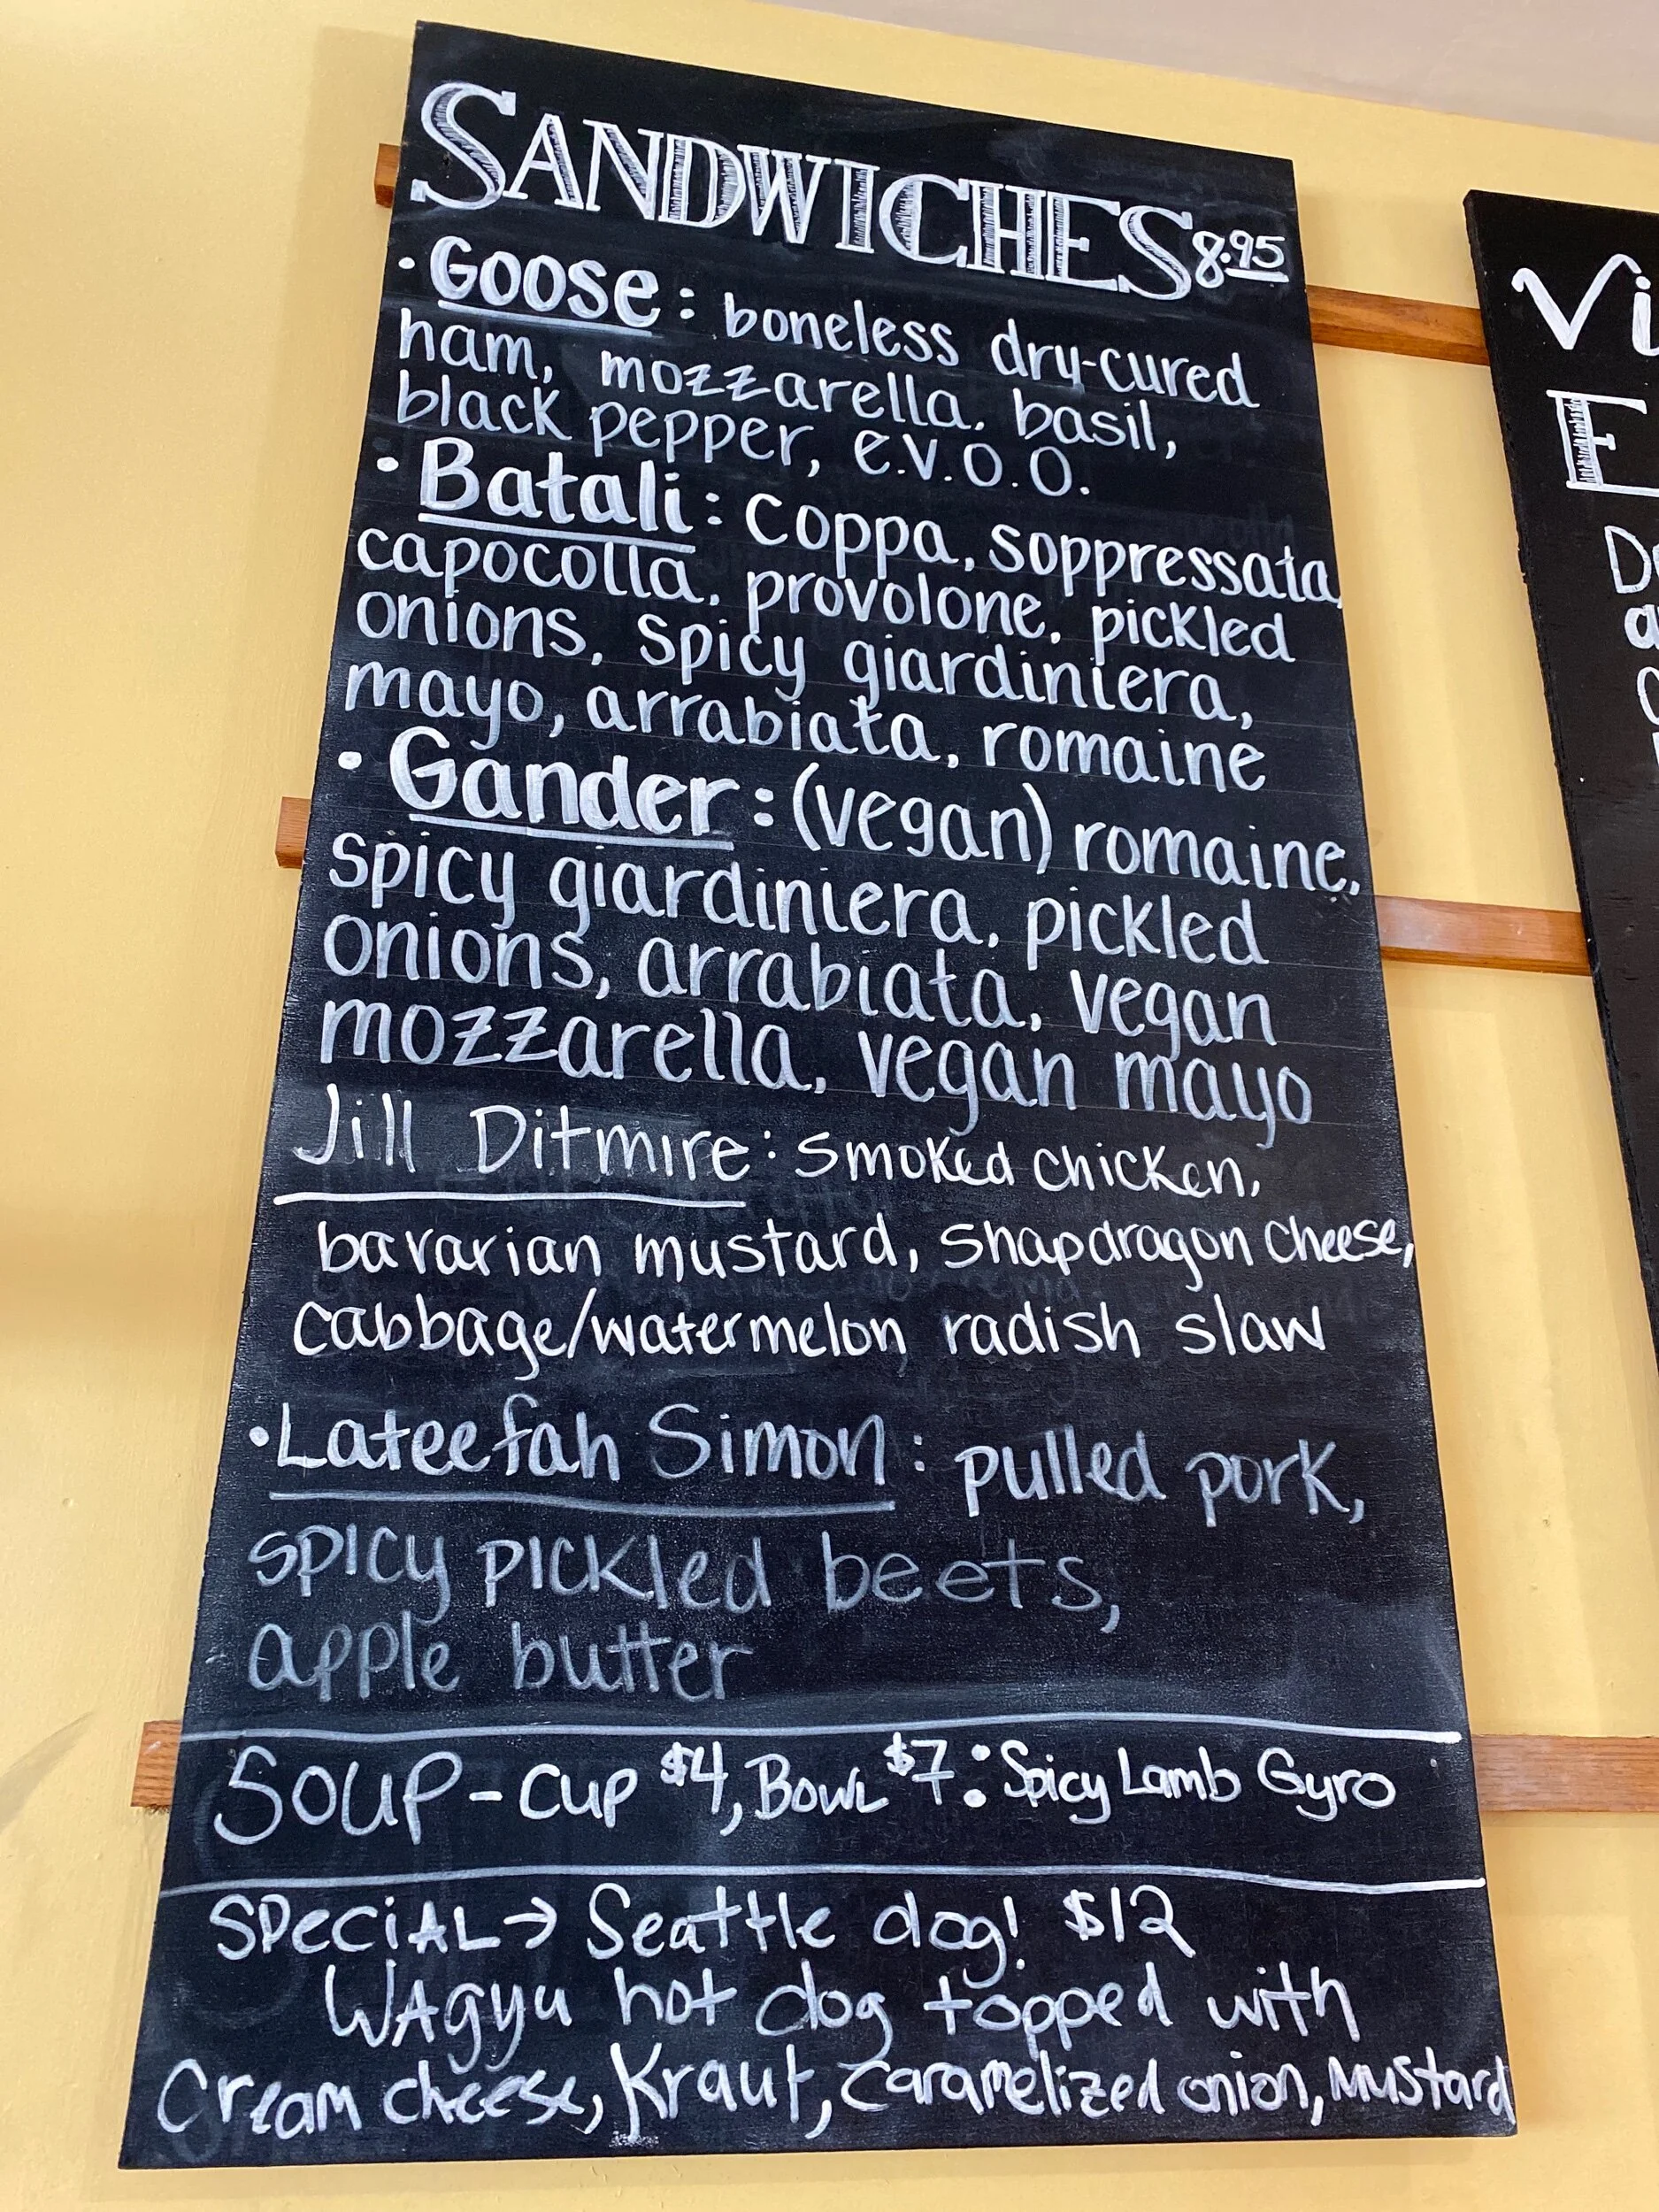 SANDWICHES 8.95
· Goose: boneless dry-cured
ham, mozzarella, basil,
black pepper, e.v.o.o.
· Batali: coppa, soppressata,
capocolla, provolone, pickled
onions, spicy giardiniera,
mayo, arrabiata, romaine
· Gander: (vegan) romaine,
spicy giardiniera, pickled
onions, arrabiata, vegan
mozzarella, vegan mayo
Jill Ditmire: smoked chicken,
bavarian mustard, snapdragon cheese,
cabbage/watermelon radish slaw
· Lateefah Simon: pulled pork,
spicy pickled beets,
apple butter
Soup - cup $4, Bowl $7: Spicy Lamb Gyro
SPeciAL → Seattle dog! $12
WAgyu hot dog topped with
Cream cheese, Kraut, Caramelized onion, Mustard